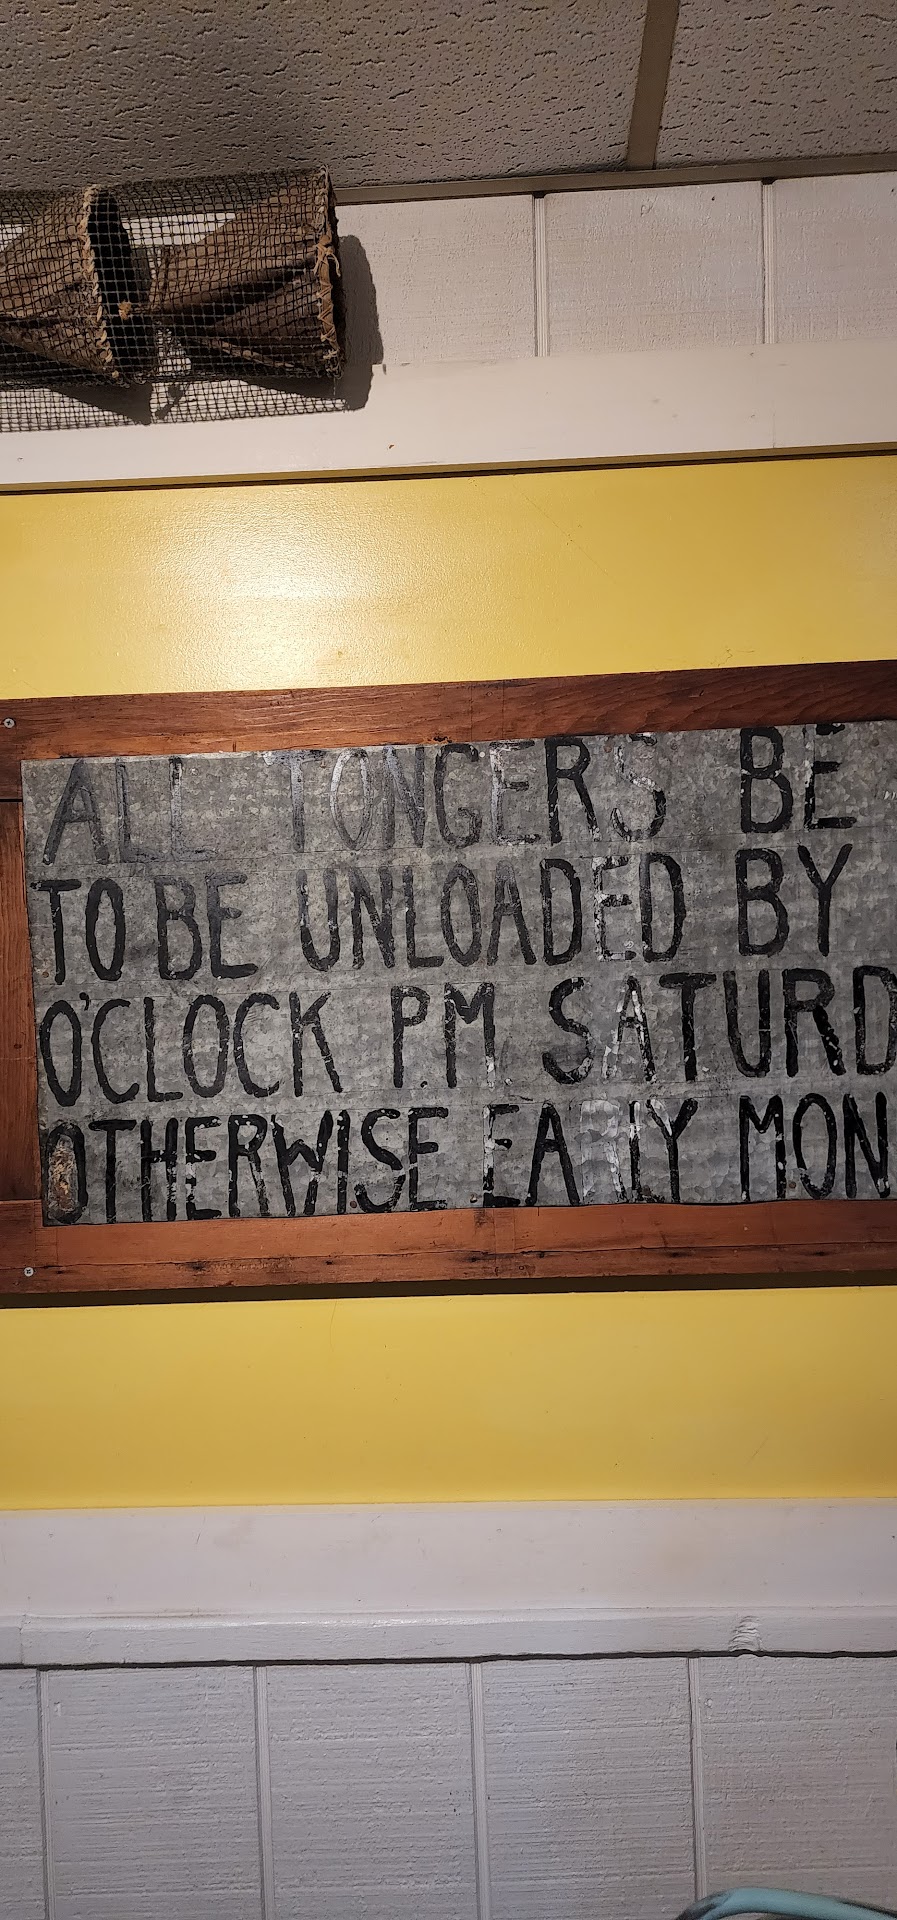 ALL TONGERS BE
TO BE UNLOADED BY
O'CLOCK P.M. SATURD
OTHERWISE EARLY MON